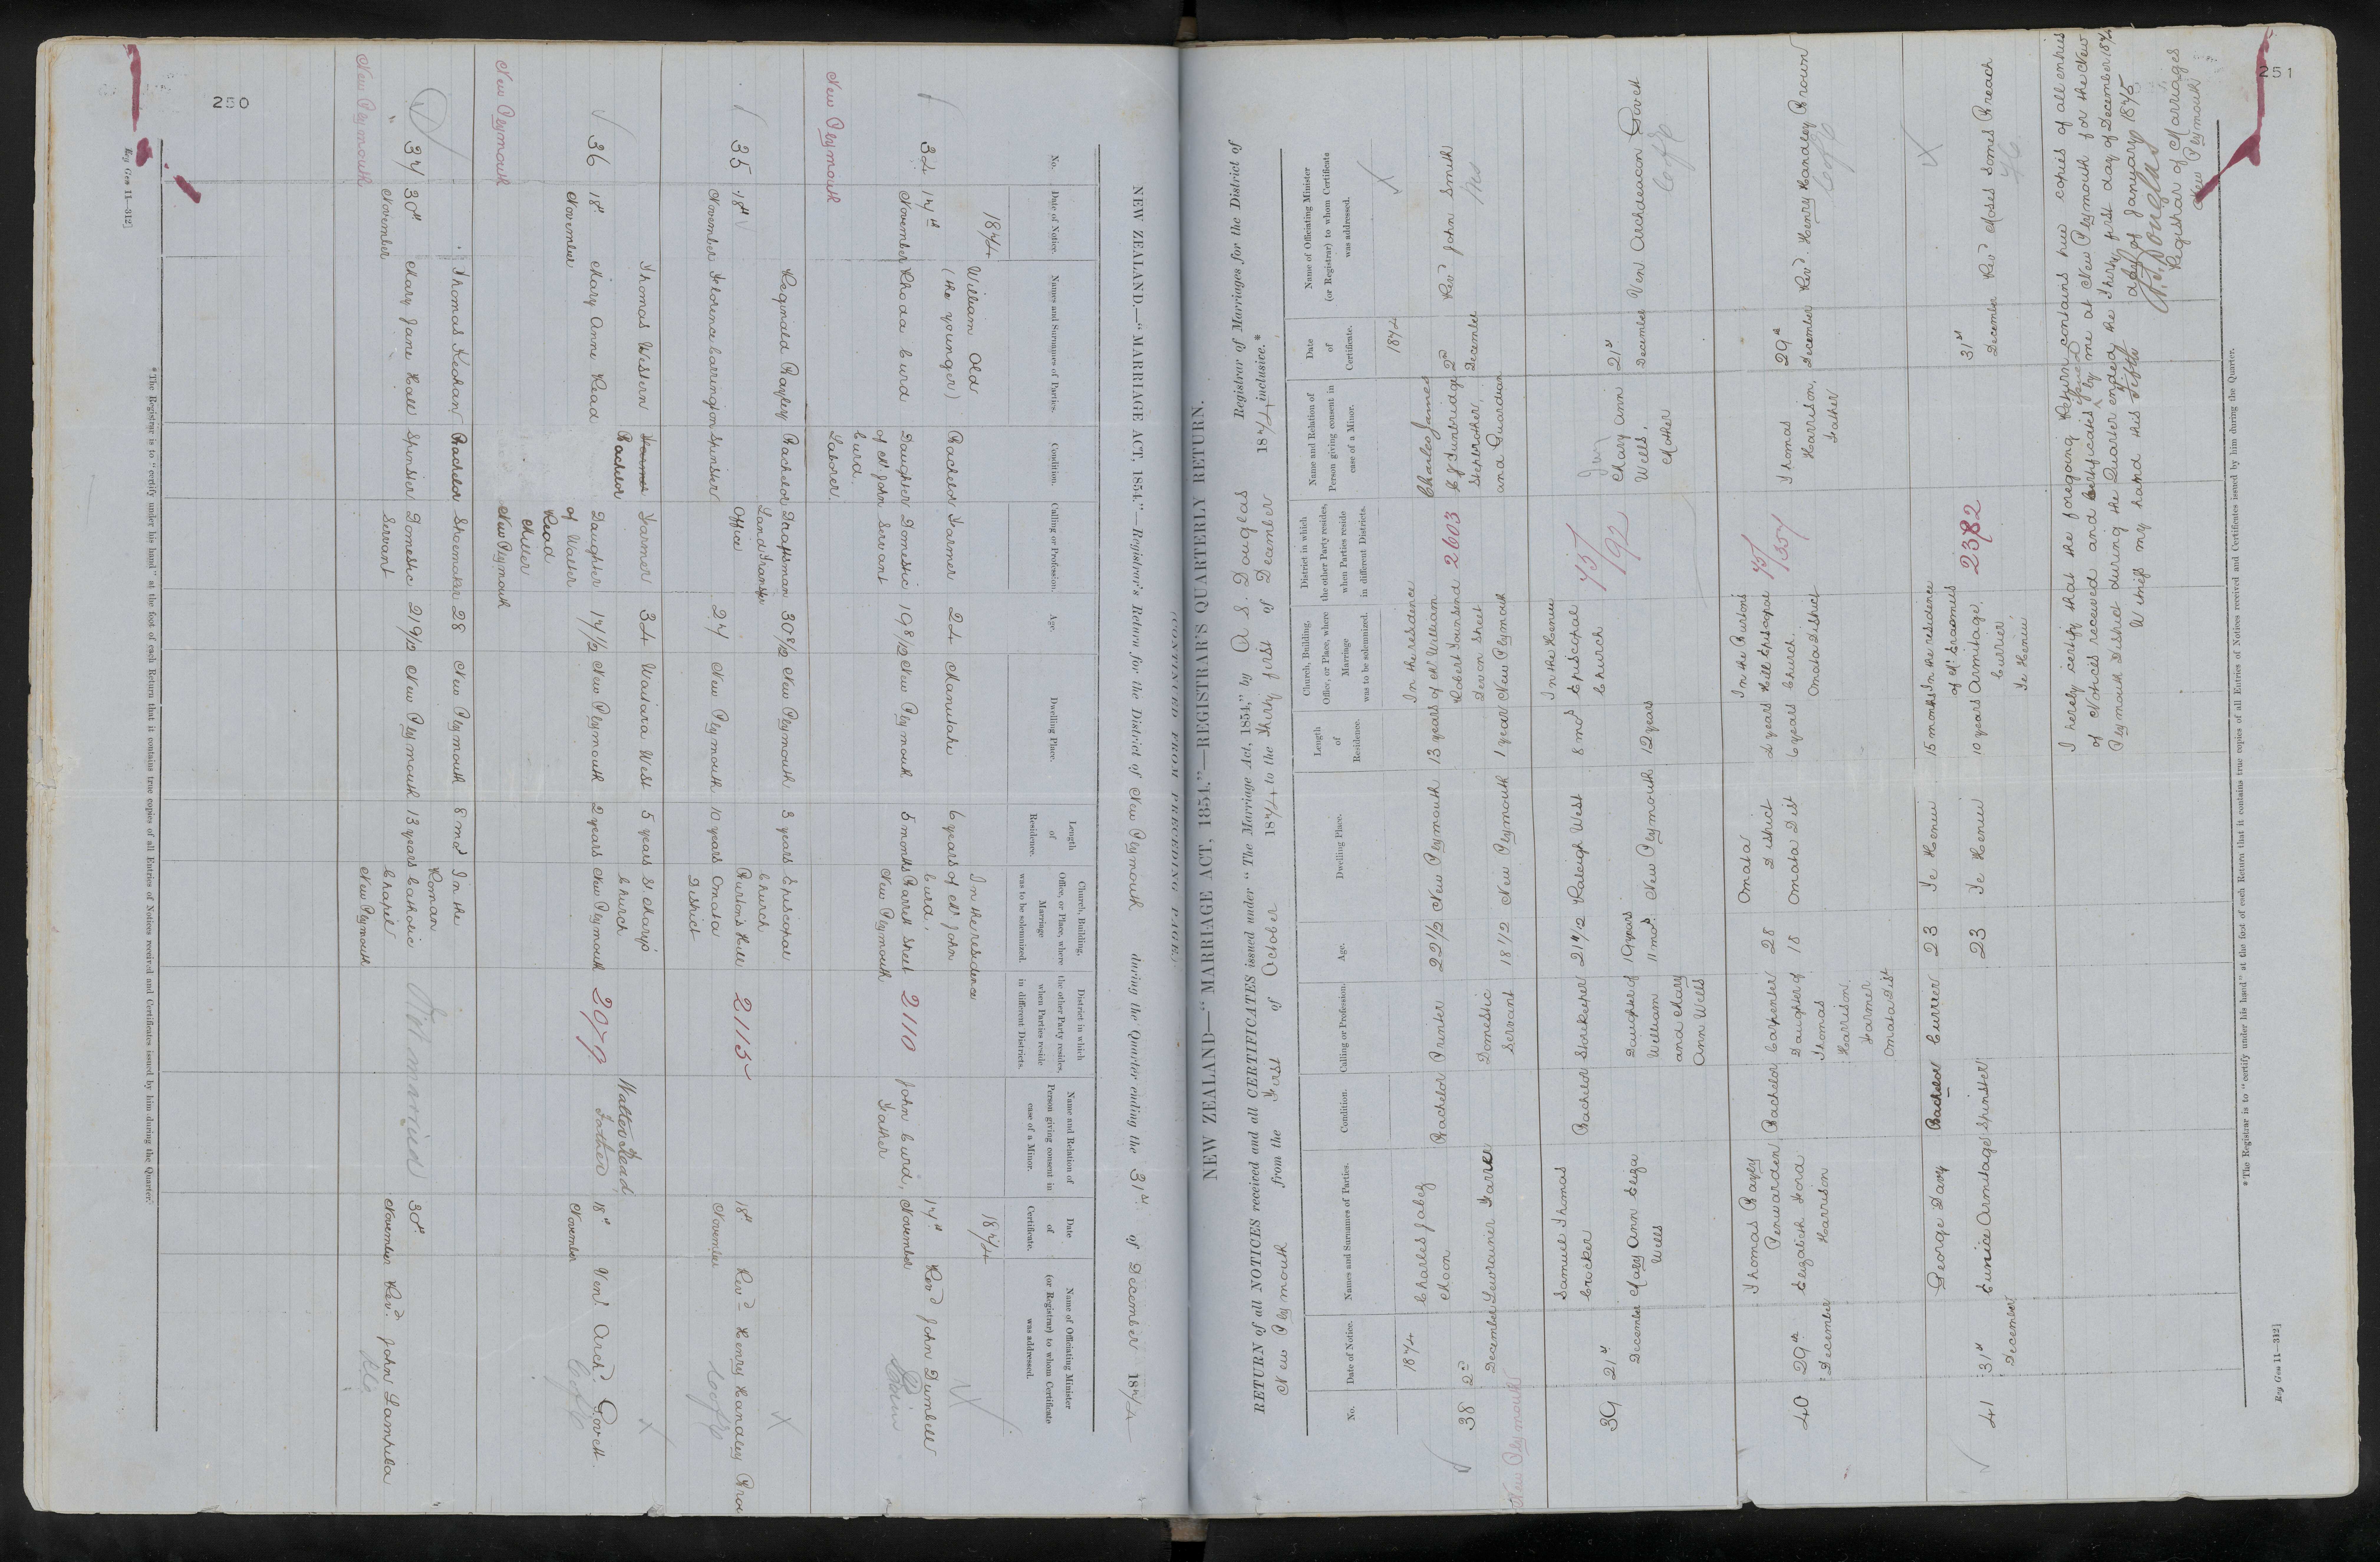 250
NEW ZEALAND.—"MARRIAGE ACT, 1854."—Registrar's Quarterly Return for the District of New Plymouth during the Quarter ending the 31st of December 1874
No.
Date of Notice.
Names and Surnames of Parties.
Condition.
Calling or Profession.
Age.
Dwelling Place.
Length
of
Residence.
Church, Building,
Office, or Place, where
Marriage
was to be solemnized.
District in which
the other Party resides,
when Parties reside
in different Districts.
Name and Relation of
Person giving consent in
case of a Minor.
Date
of
Certificate.
Name of Officiating Minister
(or Registrar) to whom Certificate
was addressed.
1874
1874
William Old
(the younger) Bachelor Farmer 24 Manutahi 6 years
In the residence
of Mr John
Curd,
34 14th
November Rhoda Curd Daughter
of Mr John
Curd
Laborer
Domestic
Servant
19 8/12 New Plymouth 5 months
Barrett Street
New Plymouth
2110
John Curd,
Father
14th
November
Revd John Dumbell
New Plymouth
Reginald Bayley Bachelor Draftsman
Land Transfer
Office
30 8/12 New Plymouth 3 years Episcopal
Church
35 18th
November Florence Carrington Spinster 24 New Plymouth 10 years
Burton's Hill
Omata
District
2115
18th
November
Revd Henry Handley Brow
Thomas Western Farmer
Bachelor Farmer 34 Waitara West 5 years St Mary's
Church
36 18th
November
Mary Anne Read Daughter
of Walter
Read
Miller
New Plymouth
17 1/2 New Plymouth 2 years New Plymouth
2079
Walter Read
Father
18th
November
Venl Archd. Govett
New Plymouth
Thomas Keohan Bachelor Shoemaker 28 New Plymouth 8 mos In the
Roman
Catholic
Chapel
New Plymouth
37 30th
November
Mary Jane Hall Spinster Domestic
Servant
21 9/12 New Plymouth 13 years
Not married
30th
November
Revd. John Lampila
New Plymouth
* The Registrar is to "certify under his hand" at the foot of each Return that it contains true copies of all Entries of Notices received and Certificates issued by him during the Quarter.
Reg Gen 11—312]
251
(CONTINUED FROM PRECEDING PAGE).
NEW ZEALAND—"MARRIAGE ACT, 1854."—REGISTRAR'S QUARTERLY RETURN.
RETURN of all NOTICES received and all CERTIFICATES issued under "The Marriage Act, 1854," by A. S. Douglas Registrar of Marriages for the District of
New Plymouth from the First of October 1874, to the Thirty first of December 1874, inclusive.*
No.
Date of Notice.
Names and Surnames of Parties.
Condition.
Calling or Profession.
Age.
Dwelling Place.
Length
of
Residence.
Church, Building,
Office, or Place, where
Marriage
was to be solemnized.
District in which
the other Party resides,
when Parties reside
in different Districts.
Name and Relation of
Person giving consent in
case of a Minor.
Date
of
Certificate.
Name of Officiating Minister
(or Registrar) to whom Certificate
was addressed.
1874
1874
Charles Jabez
Moon
Bachelor Printer 22 1/2 New Plymouth 13 years
In the residence
of Mr William
Robert Townsend
Devon Street
New Plymouth
38 2nd
December
Lewrainer Farrer
Domestic
Servant
18 1/2 New Plymouth 1 year
2603
Charles James
Tunbridge
Stepbrother,
and Guardian
2nd
December
Revd John Smith
New Plymouth
Samuel Thomas
Crocker
Bachelor Storekeeper 21 7/12 Raleigh West 8 mos
In the Henui
Episcopal
Church
39 21st
December
Mary Ann Eliza
Wells
Daughter of
William
and Mary
Ann Wells
19 years
11 mos.
New Plymouth 12 years
75/192
Mary Ann
Wells.
Mother
21st
December
Ven Archdeacon Govett
Thomas Bayly
Penwarden
Bachelor Carpenter 28 Omata
District
2 years
In the Burtons
Hill Episcopal
Church.
Omata District
40 29th
December
Elizabeth Ford
Harrison
Daughter of
Thomas
Harrison.
Farmer
Omata Dist
18 Omata Dist 6 years
Thomas
Harrison,
Father
29th
December
Revd. Henry Handley Brown
George Davy Bachelor Currier 23 Te Henui 15 months
In the residence
of Mr Erasmus
Armitage,
Currier
Te Henui
41 31st
December
Eunice Armitage Spinster 23 Te Henui 10 years
2382
31st
December
Revd Moses Somes Breach
I hereby certify that the foregoing Return contains true copies of all entries
of Notices received and Certificates issued by me at New Plymouth for the New
Plymouth District during the Quarter ended the Thirty first day of December 1874
Witness my hand this Fifth day of January 1875
A. S. Douglas
Registrar of Marriages
New Plymouth
* The Registrar is to "certify under his hand" at the foot of each Return that it contains true copies of all Entries of Notices received and Certificates issued by him during the Quarter.
Reg Gen 11—312]